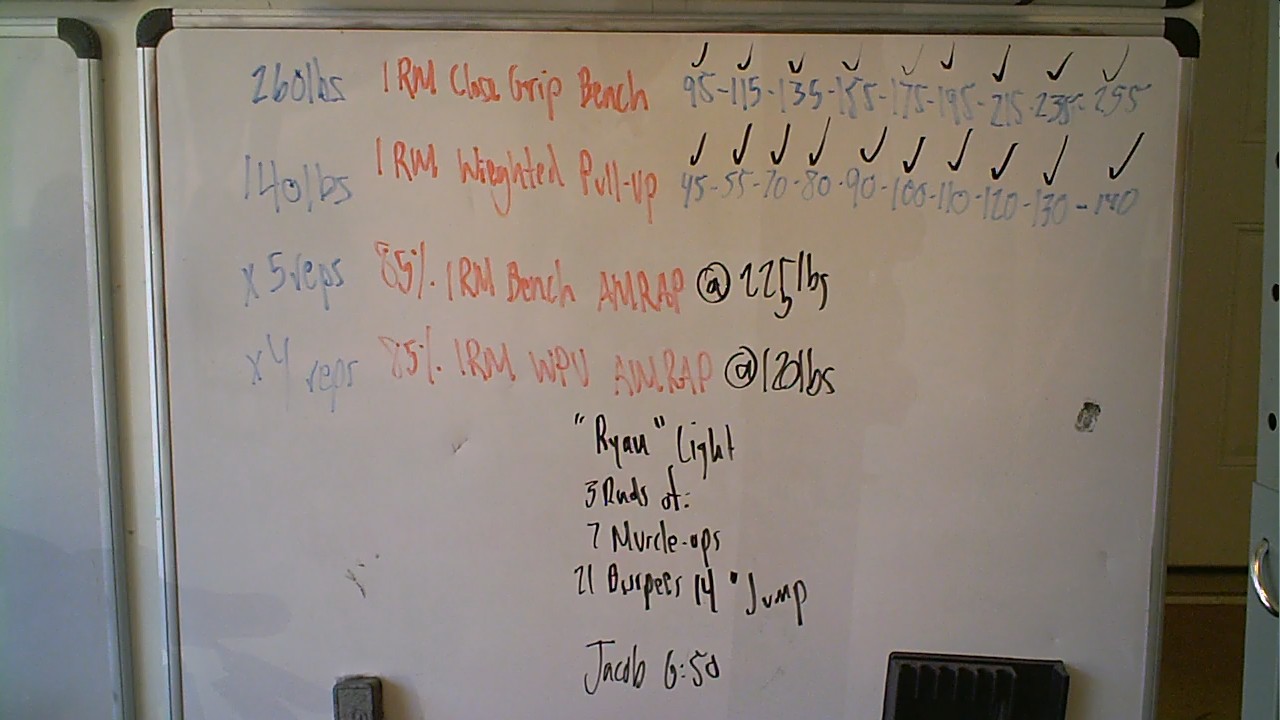 260lbs 1RM Close Grip Bench 95-115-135-155-175-195-215-235-255
140lbs 1RM Wieghted Pull-up 45-55-70-80-90-100-110-120-130-140
x 5 reps 85% 1RM Bench AMRAP @ 225lbs
x 4 reps 85% 1RM WPU AMRAP @ 120lbs
"Ryan" Light
3 Rnds of:
7 Muscle-ups
21 Burpees 14" Jump
Jacob 6:50